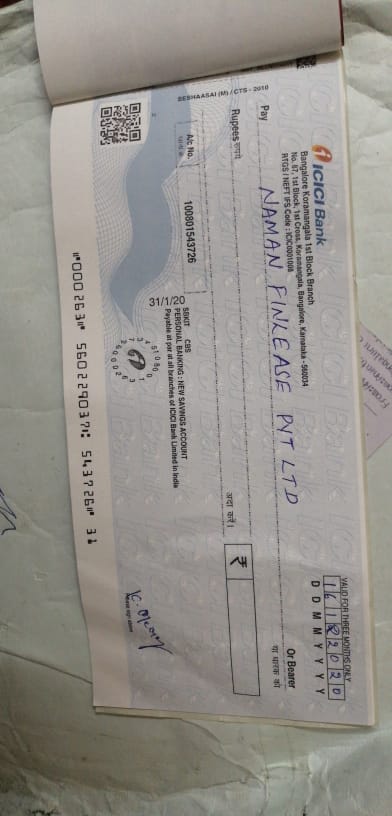 ICICI Bank
Bangalore Koramangala 1st Block Branch
No. 67, 1st Block, 1st Cross, Koramangala, Bangalore, Karnataka - 560034
RTGS / NEFT IFS Code : ICIC0001008
VALID FOR THREE MONTHS ONLY
16122020
D D M M Y Y Y Y
Pay NAMAN FINKEASE PVT LTD
Or Bearer
या धारक को
Rupees रुपये
अदा करें।
₹
A/c No.
100801543726
31/1/20
SBKIT CBS
PERSONAL BANKING - NEW SAVINGS ACCOUNT
Payable at par at all branches of ICICI Bank Limited in India
BESHAASAI (M) / CTS - 2010
⑈000263⑈ 560229037⑆ 543726⑈ 31